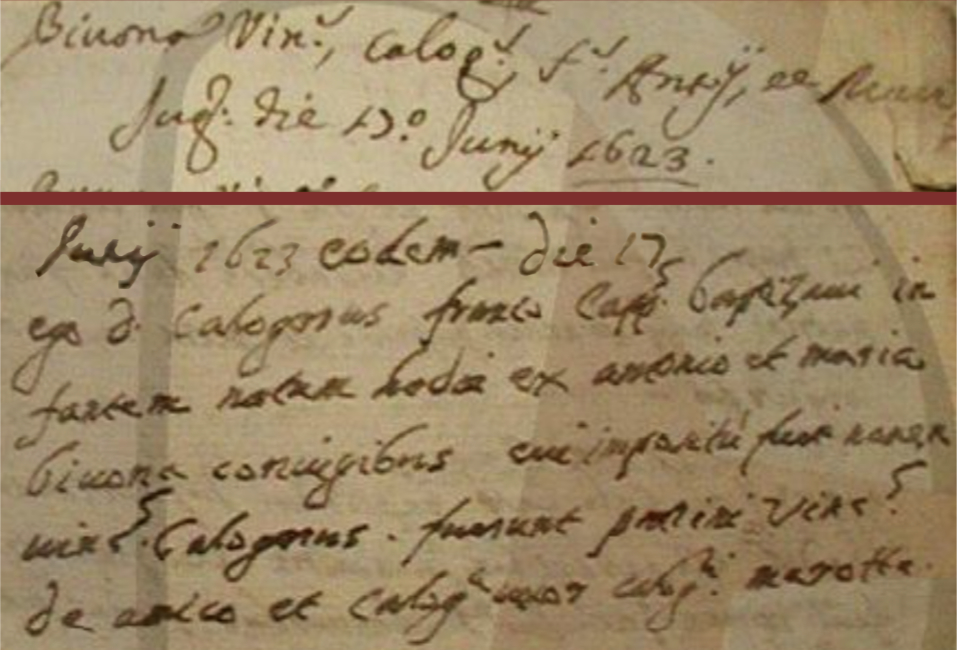 Biuona Vin.s, calog.s f.s Antij, et Maria
Jug: die 17.º Junij 1623.
Junij 1623 eodem - die 17
ego d. Calogerus franco Capp.s baptizaui in
fantem natum hodie ex antonio et maria
biuona coniugibus cui impositũ fuit nomen
uinc.s Calogerus. fuerunt patrini Vinc.s
de amico et calog.a uxor calog.i marotta.